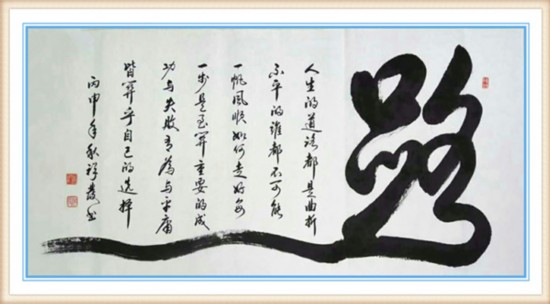 路
人生的道路都是曲折
不平的谁都不可能
一帆风顺如何走好每
一步是至关重要的成
功与失败有为与平庸
皆关乎自己的选择
丙申年秋祥发书